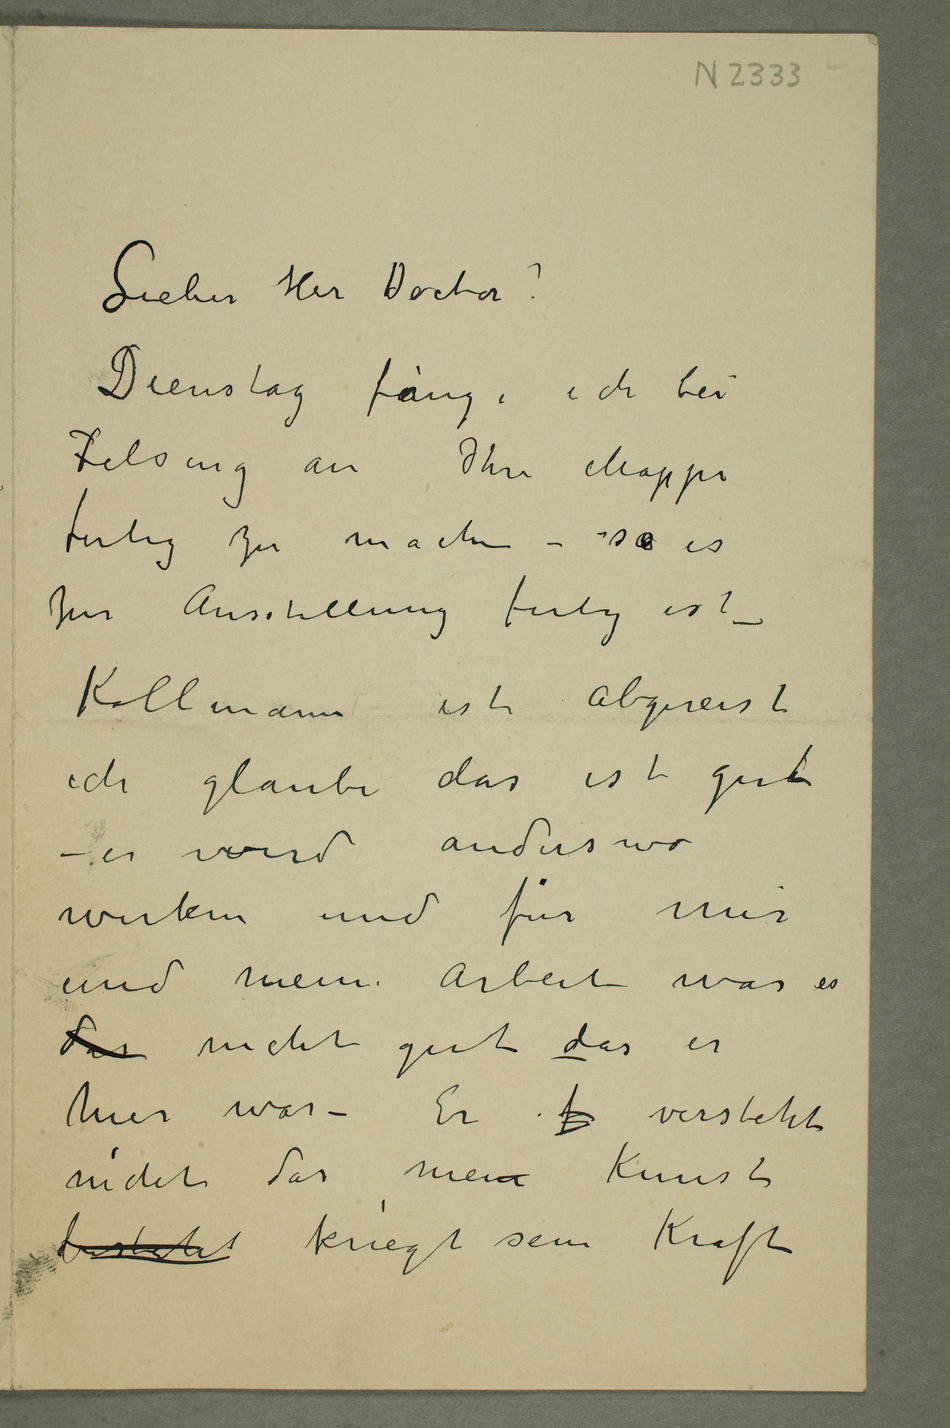 N 2333
Lieber Her Doctor!
Dienstag fänge ich bei
Felsing an Ihre Mappe
fertig zu machen – so es
zur Ausstellung fertig ist –
Kollmann ist abgereist
ich glaube das ist gut
– er wird anderswo
wirken und für mir
und meine Arbeit war es
das nicht gut das er
hier war – Er f versteht
nicht das mein Kunst
besteht kriegt sein Kraft